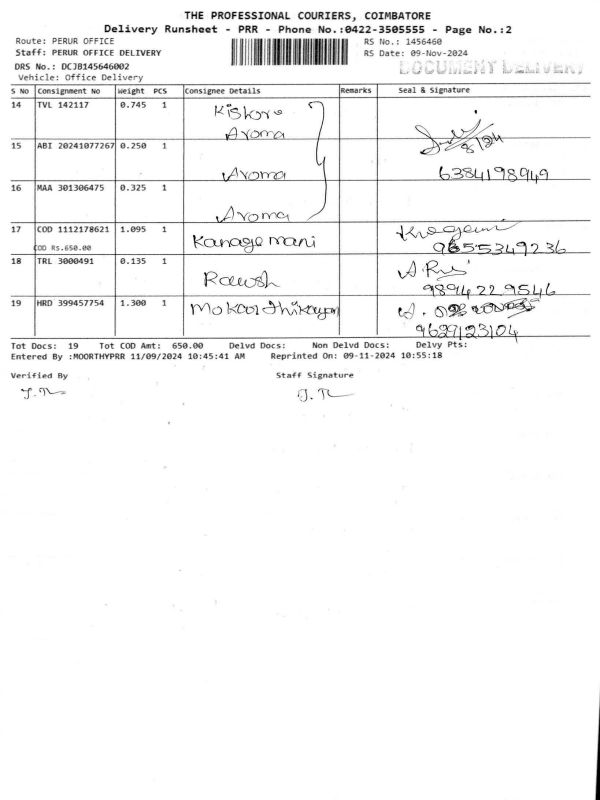 THE PROFESSIONAL COURIERS, COIMBATORE
Delivery Runsheet - PRR - Phone No.:0422-3505555 - Page No.:2
Route: PERUR OFFICE RS No.: 1456460
Staff: PERUR OFFICE DELIVERY RS Date: 09-Nov-2024
DRS No.: DCJB145646002 DOCUMENT DELIVERY
Vehicle: Office Delivery
S No Consignment No Weight PCS Consignee Details Remarks Seal & Signature
14 TVL 142117 0.745 1 Kishore
Aroma
15 ABI 20241077267 0.250 1
Aroma 6384198949
16 MAA 301306475 0.325 1
Aroma
17 COD 1112178621 1.095 1 Kanage mani
COD Rs.650.00 9655349236
18 TRL 3000491 0.135 1
9894229546
19 HRD 399457754 1.300 1
9629123104
Tot Docs: 19 Tot COD Amt: 650.00 Delvd Docs: Non Delvd Docs: Delvy Pts:
Entered By :MOORTHYPRR 11/09/2024 10:45:41 AM Reprinted On: 09-11-2024 10:55:18
Verified By Staff Signature